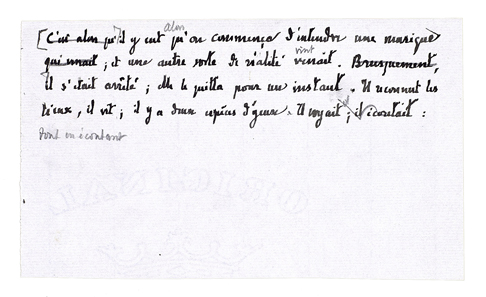 [C'est alors qu'] il y eut alors qu'on commença d'entendre une musique
qui venait ; et une autre sorte de réalité vint venait. Brusquement,
il s'était arrêté ; elle le quitta pour un instant. Il reconnut les
lieux, il vit ; il y a deux espèces d'yeux. Il voyait ; il écoutait :
tout en écoutant